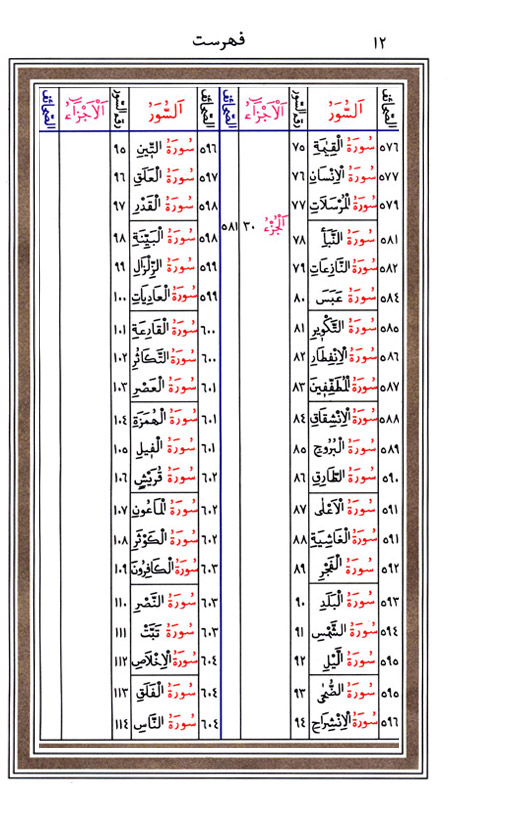 ١٢ فهرست
الصّحائف اَلسُّوَرُ رقم السّور اَلْاَجْزَاءُ الصّحائف
٥٧٦ سُورَةُ الْقِيٰمَةِ ٧٥
٥٧٧ سُورَةُ الْاِنْسَانِ ٧٦
٥٧٩ سُورَةُ الْمُرْسَلَاتِ ٧٧
٥٨١ سُورَةُ النَّبَأِ ٧٨ اَلْجُزْءُ ٣٠ ٥٨١
٥٨٢ سُورَةُ النَّازِعَاتِ ٧٩
٥٨٤ سُورَةُ عَبَسَ ٨٠
٥٨٥ سُورَةُ التَّكْوِيرِ ٨١
٥٨٦ سُورَةُ الْاِنْفِطَارِ ٨٢
٥٨٧ سُورَةُ الْمُطَفِّفِينَ ٨٣
٥٨٨ سُورَةُ الْاِنْشِقَاقِ ٨٤
٥٨٩ سُورَةُ الْبُرُوجِ ٨٥
٥٩٠ سُورَةُ الطَّارِقِ ٨٦
٥٩١ سُورَةُ الْاَعْلٰى ٨٧
٥٩١ سُورَةُ الْغَاشِيَةِ ٨٨
٥٩٢ سُورَةُ الْفَجْرِ ٨٩
٥٩٣ سُورَةُ الْبَلَدِ ٩٠
٥٩٤ سُورَةُ الشَّمْسِ ٩١
٥٩٥ سُورَةُ الَّيْلِ ٩٢
٥٩٥ سُورَةُ الضُّحٰى ٩٣
٥٩٦ سُورَةُ الْاِنْشِرَاحِ ٩٤
الصّحائف اَلسُّوَرُ رقم السّور اَلْاَجْزَاءُ الصّحائف
٥٩٦ سُورَةُ التِّينِ ٩٥
٥٩٧ سُورَةُ الْعَلَقِ ٩٦
٥٩٨ سُورَةُ الْقَدْرِ ٩٧
٥٩٨ سُورَةُ الْبَيِّنَةِ ٩٨
٥٩٩ سُورَةُ الزِّلْزَالِ ٩٩
٥٩٩ سُورَةُ الْعَادِيَاتِ ١٠٠
٦٠٠ سُورَةُ الْقَارِعَةِ ١٠١
٦٠٠ سُورَةُ التَّكَاثُرِ ١٠٢
٦٠١ سُورَةُ الْعَصْرِ ١٠٣
٦٠١ سُورَةُ الْهُمَزَةِ ١٠٤
٦٠١ سُورَةُ الْفِيلِ ١٠٥
٦٠٢ سُورَةُ قُرَيْشٍ ١٠٦
٦٠٢ سُورَةُ الْمَاعُونِ ١٠٧
٦٠٢ سُورَةُ الْكَوْثَرِ ١٠٨
٦٠٣ سُورَةُ الْكَافِرُونَ ١٠٩
٦٠٣ سُورَةُ النَّصْرِ ١١٠
٦٠٣ سُورَةُ تَبَّتْ ١١١
٦٠٤ سُورَةُ الْاِخْلَاصِ ١١٢
٦٠٤ سُورَةُ الْفَلَقِ ١١٣
٦٠٤ سُورَةُ النَّاسِ ١١٤